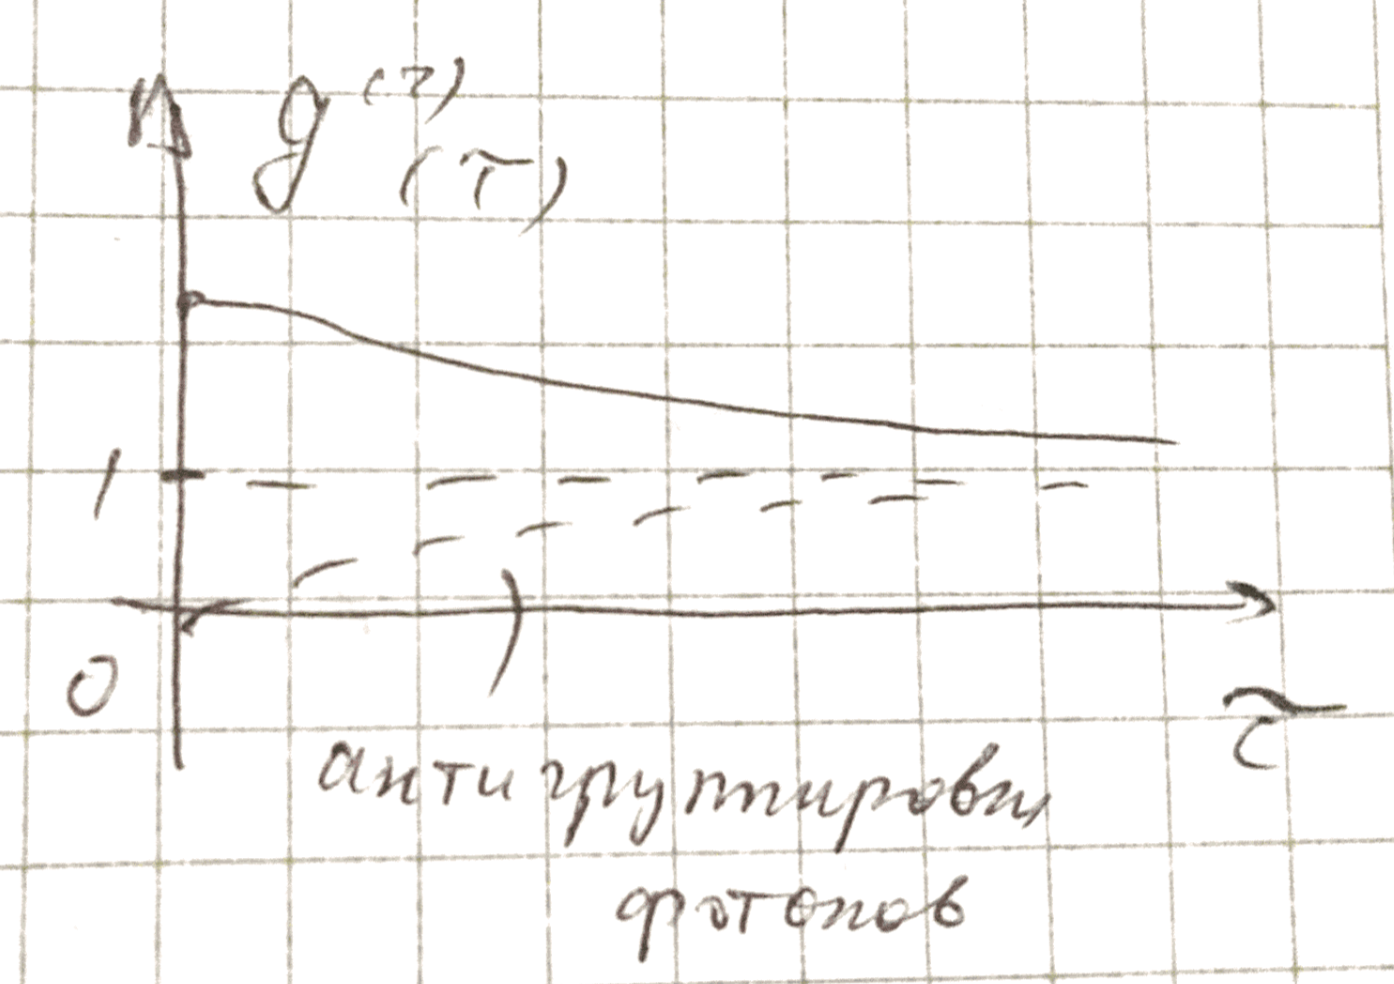 g⁽²⁾(τ)
1
0
τ
антигруппировки
фотонов